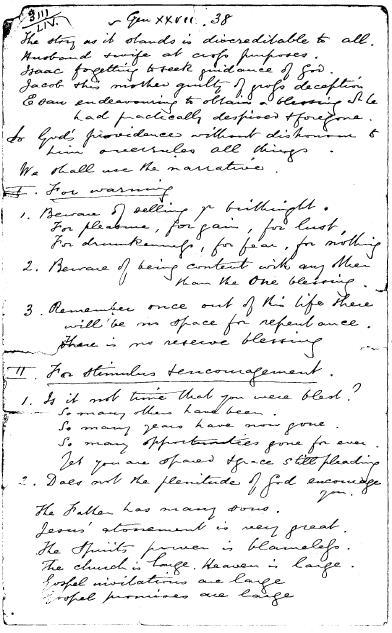 3111
LIV.
Gen XXVII. 38
The story as it stands is discreditable to all.
Husband & wife at cross purposes.
Isaac forgetting to seek guidance of God.
Jacob & his mother guilty of gross deception
Esau endeavouring to obtain a blessing wh he
had practically despised & foregone.
So God's providence without dishonour to
him overrules all things.
We shall use the narrative.
I. For warning
1. Beware of selling yr birthright.
For pleasure, for gain, for lust,
For drunkenness, for fear, for nothing
2. Beware of being content with any other
than the One blessing.
3. Remember once out of this life there
will be no space for repentance.
There is no reserve blessing
II. For Stimulus & encouragement.
1. Is it not time that you were blest?
So many others have been.
So many years have now gone.
So many opportunities gone for ever.
Yet you are spared & grace still pleading
2. Does not the plenitude of God encourage
you.
The Father has many sons.
Jesus' atonement is very great.
The Spirits power is blameless.
The church is large. Heaven is large.
Gospel invitations are large
Gospel promises are large